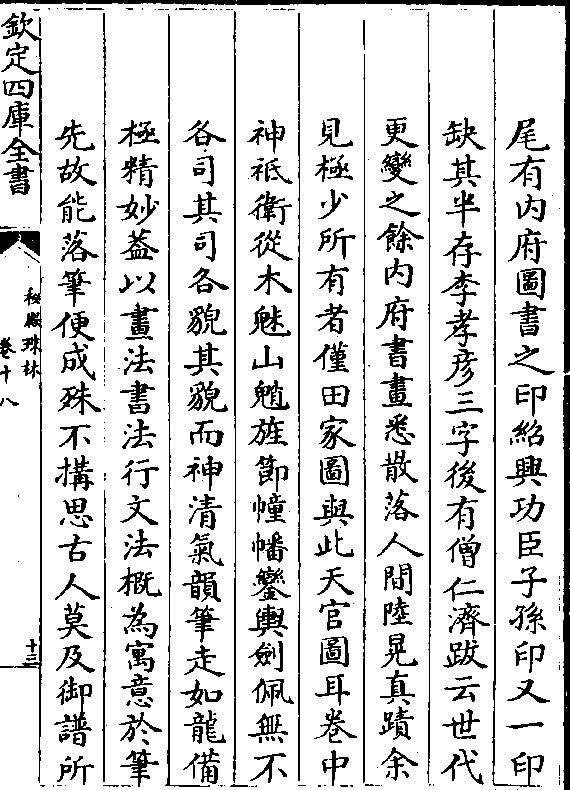 尾有内府圖書之印紹興功臣子孫印又一印
缺其半存李孝彦三字後有僧仁濟跋云世代
更變之餘内府書畫悉散落人間陸晃真蹟余
見極少所有者僅田家圖與此天官圖耳卷中
神祗衛從木魅山魈旌節幢幡鑾輿劍佩無不
各司其司各貌其貌而神清氣韻筆走如龍備
極精妙葢以畫法書法行文法概為寓意於筆
先故能落筆便成殊不搆思古人莫及御譜所
欽定四庫全書
秘殿珠林
卷十八
十三